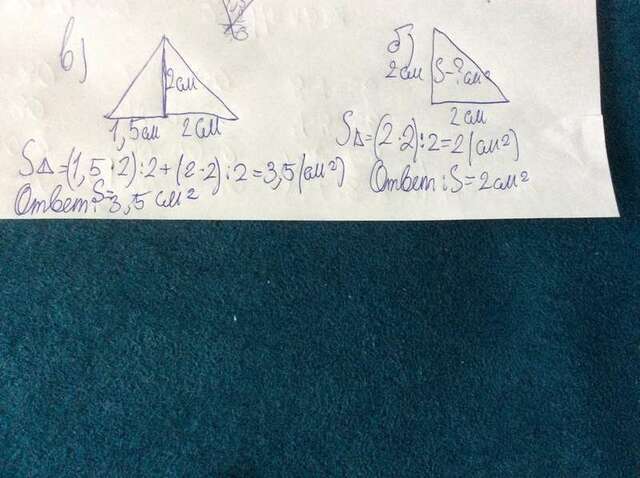 в)
2 см
1,5 см 2 см
S△=(1,5·2):2+(2·2):2=3,5(см²)
Ответ: S=3,5 см²
б)
2 см S-? см²
2 см
S△=(2·2):2=2(см²)
Ответ: S=2см²